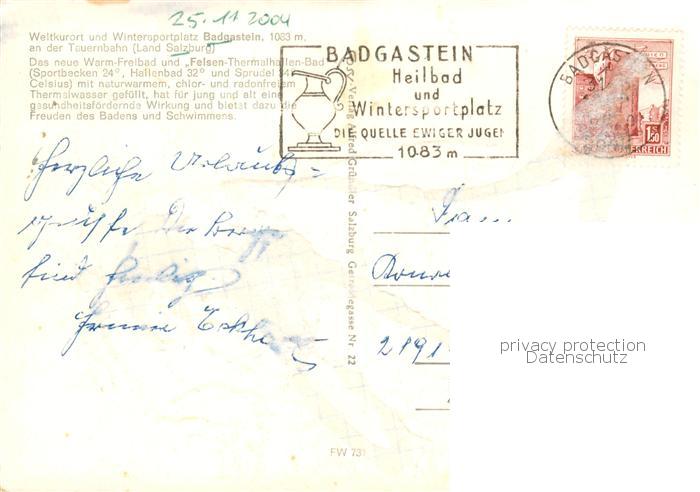 25.11.2004
Weltkurort und Wintersportplatz Badgastein, 1083 m,
an der Tauernbahn (Land Salzburg)
Das neue Warm-Freibad und „Felsen-Thermalhallen-Bad
(Sportbecken 24°, Hallenbad 32° und Sprudel 34
Celsius) mit naturwarmem, chlor- und radonfreiem
Thermalwasser gefüllt, hat für jung und alt eine
gesundheitsfördernde Wirkung und bietet dazu die
Freuden des Badens und Schwimmens.
BADGASTEIN
Heilbad
und
Wintersportplatz
DIE QUELLE EWIGER JUGEN
1083 m
BADGAS
1.50
Herzliche Urlaubs=
grüße
sind
Verlag Alfred Gründler Salzburg Getreidegasse Nr. 22
2191
privacy protection
Datenschutz
FW 731